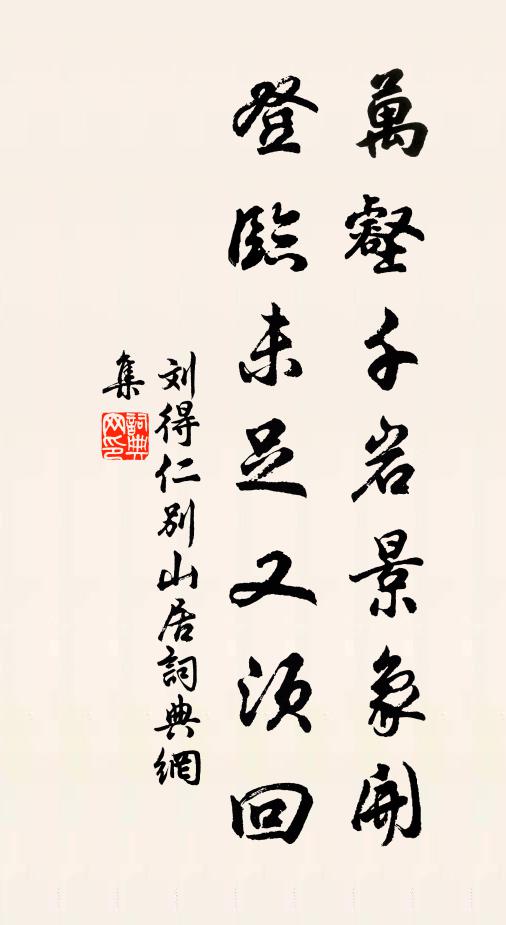 萬壑千岩景象開
登臨未足又須回
刘得仁别山居詞典網
集
詞典网印